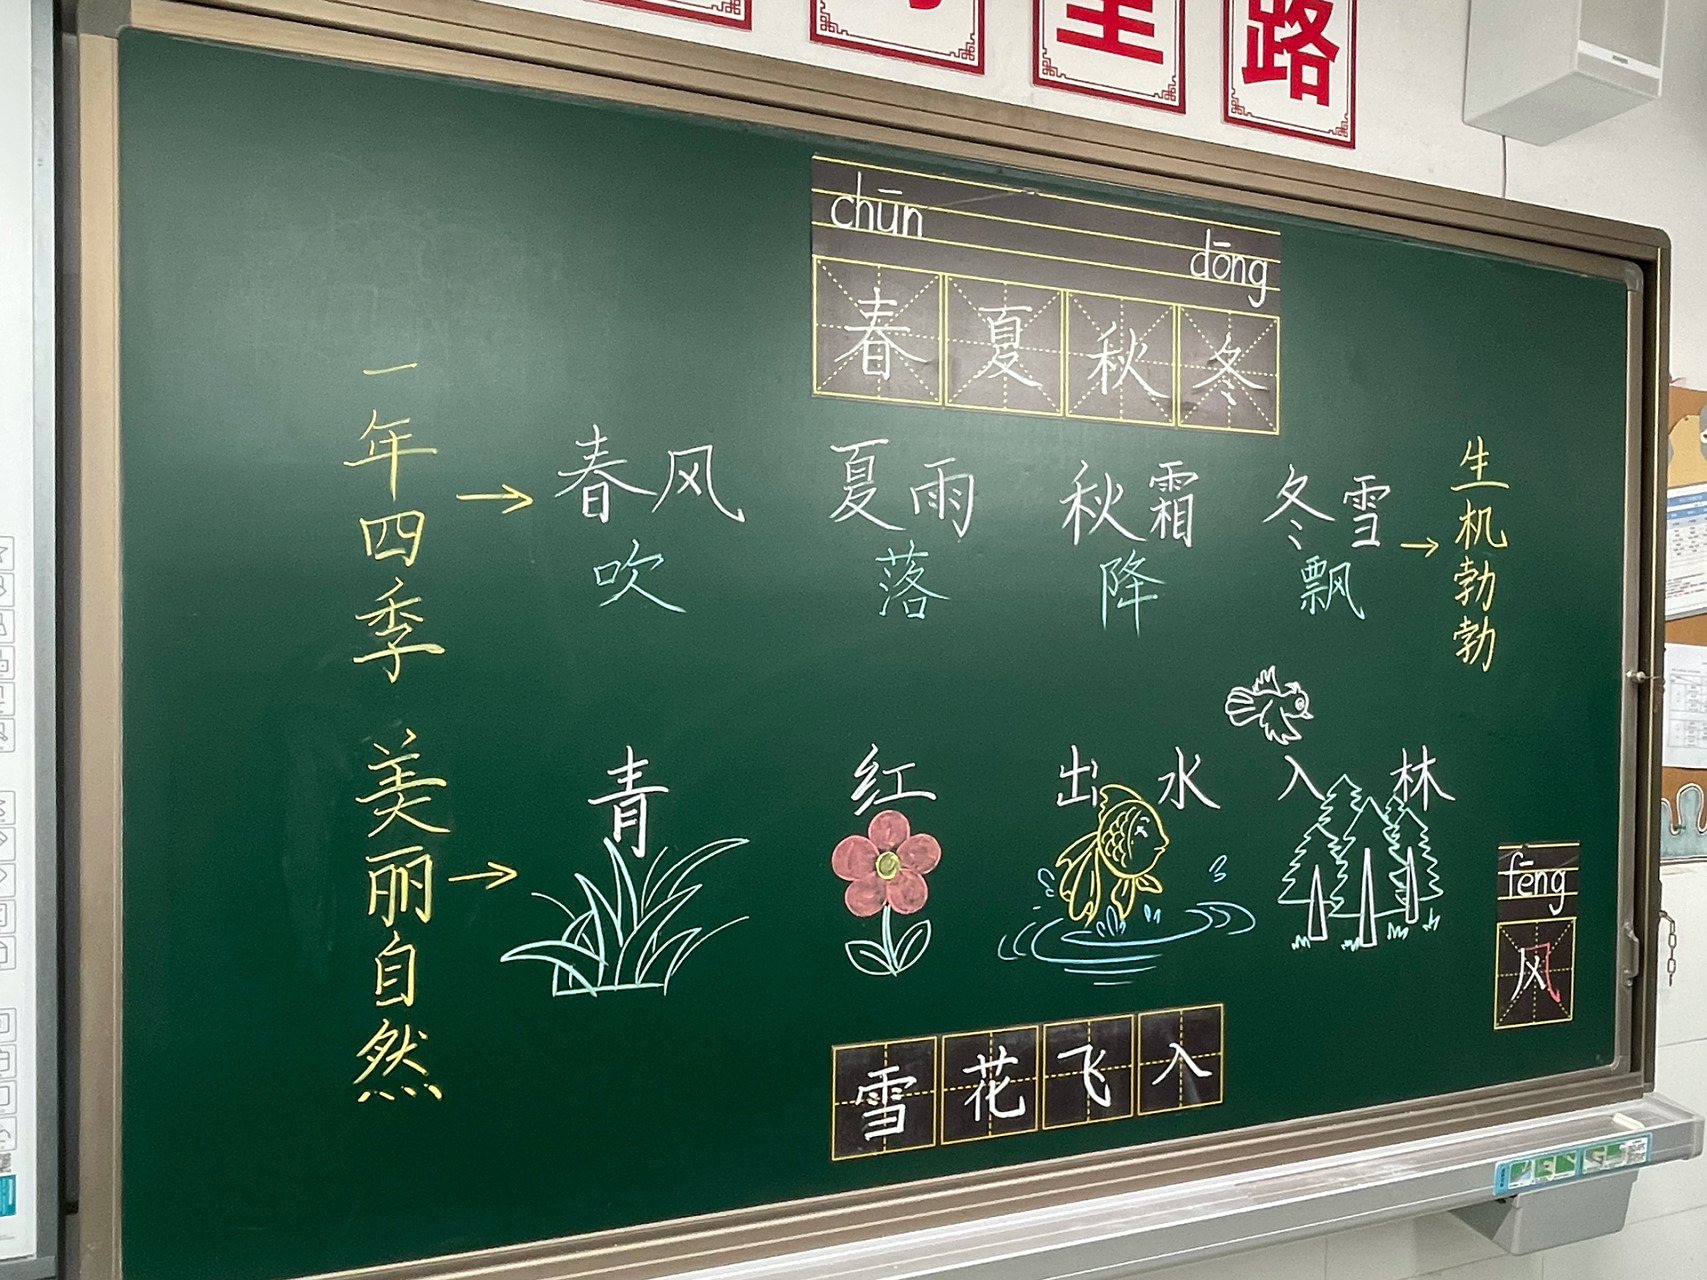 里 路
chūn dōng
春 夏 秋 冬
一年四季 → 春风 夏雨 秋霜 冬雪 → 生机勃勃
吹 落 降 飘
美丽自然 → 青 红 出水 入林
fēng
风
雪 花 飞 入